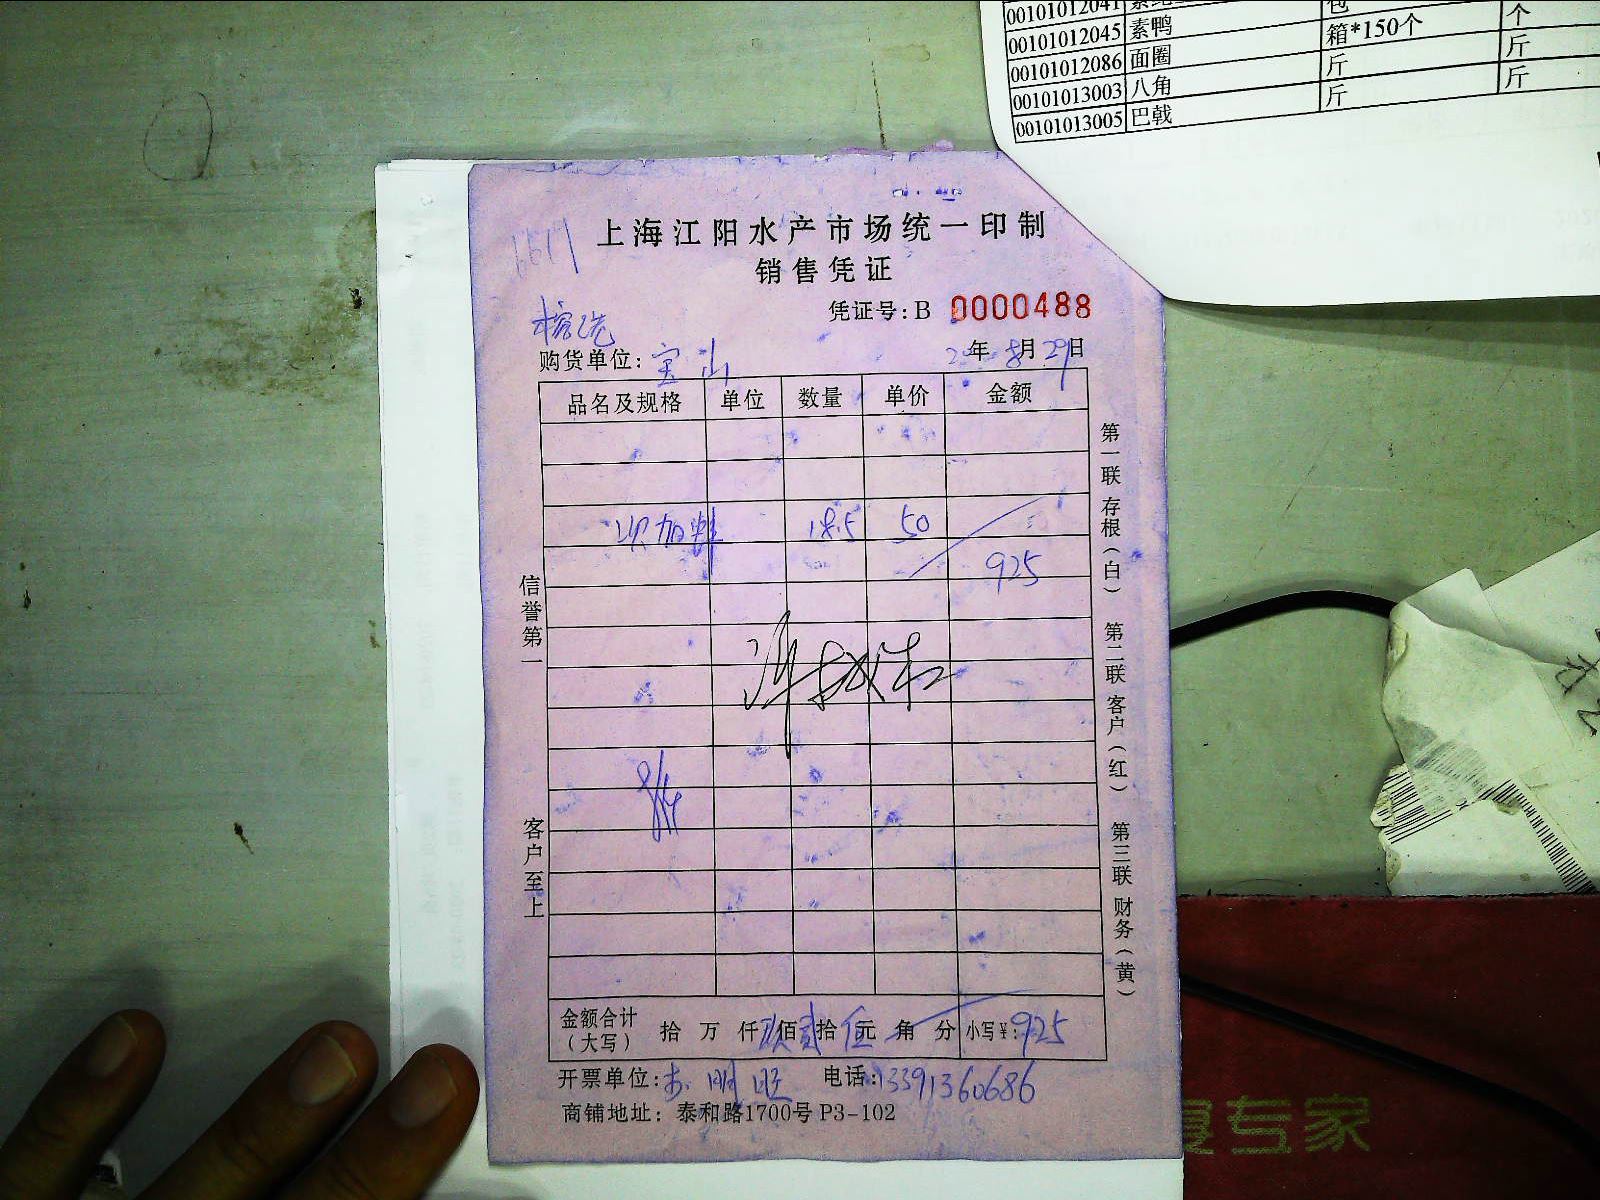 00101012041
包
00101012045 素鸭 箱*150个 个
00101012086 面圈 斤 斤
00101013003 八角 斤 斤
00101013005 巴戟
6617
上海江阳水产市场统一印制
销售凭证
凭证号: B 0000488
购货单位: 宝山 年 8月29日
品名及规格 单位 数量 单价 金额
18.5 50
925
信誉第一
客户至上
第一联 存根(白) 第二联 客户(红) 第三联 财务(黄)
金额合计(大写) 拾 万 仟 玖佰 贰拾 伍元 角 分 小写¥: 925
开票单位: 明旺 电话: 13391360686
商铺地址: 泰和路1700号 P3-102
专家